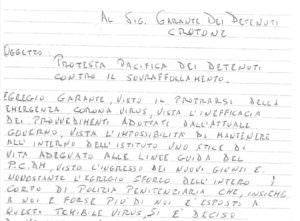 AL SIG. GARANTE DEI DETENUTI
CROTONE
OGGETTO:
PROTESTA PACIFICA DEI DETENUTI
CONTRO IL SOVRAFFOLLAMENTO.
EGREGIO GARANTE, VISTO IL PROTRARSI DELLA
EMERGENZA CORONA VIRUS, VISTA L'INEFFICACIA
DEI PROVVEDIMENTI ADOTTATI DALL'ATTUALE
GOVERNO, VISTA L'IMPOSSIBILITÀ DI MANTENERE
ALL'INTERNO DELL'ISTITUTO UNO STILE DI
VITA ADEGUATO ALLE LINEE GUIDA DEL
VISTO L'INGRESSO DEI NUOVI GIUNTI E
NONOSTANTE L'EGREGIO SFORZO DELL'INTERO
CORPO DI POLIZIA PENITENZIARIA CHE, INSIEME
A NOI E FORSE PIÙ DI NOI È ESPOSTO A
QUESTO TERRIBILE VIRUS, SI È DECISO